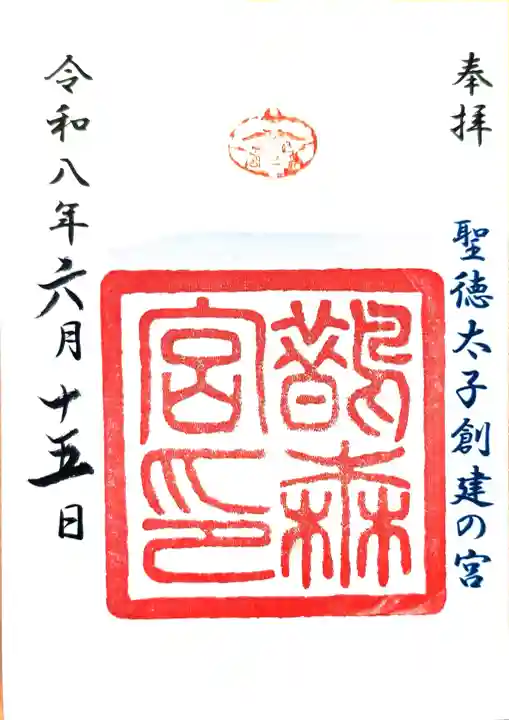 奉拝
聖徳太子創建の宮
鵲森宮印
令和八年六月十五日